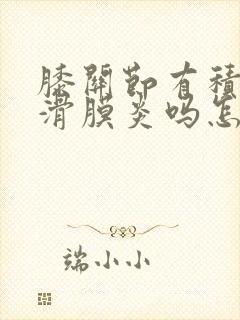 膝關節有積
滑膜炎嗎怎
端小小